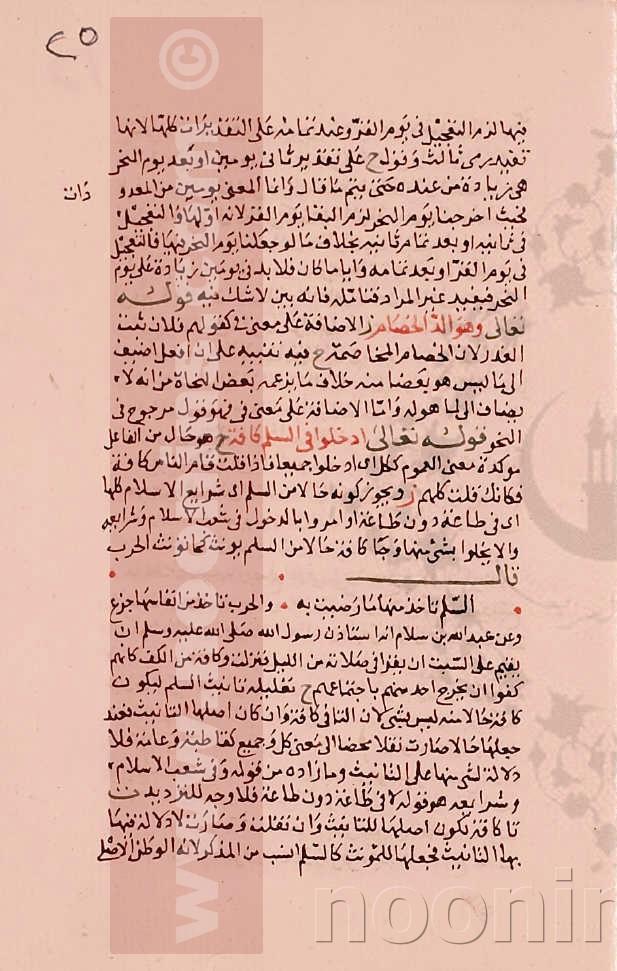 ٢٥
فيها لزم التعجيل في يوم القر وعند تمامه على التقديرات كلها لانها
تفيد رمي ثالث وقول ح على تقدير ثاني يومين او بعد يوم النحر
هي زيادة من عنده حتى يتم ما قال واما المعنى يومين من المعدو
دات
بحيث اخرجنا يوم النحر لزم البقا يوم القر لانه اولها والتعجيل
في ثمانيه او بعد تمام ثانيه بخلاف ما لو جعلنا يوم النحر فيها فالتعجيل
في يوم القر او بعد تمامه وايا ما كان فلا بد في يومين زيادة على يوم
النحر فيفيد غير المراد فتامله فانه بين لا شك فيه قوله
تعالى وهو الد الخصام ز الاضافة على معنى في كقولهم فلان ثبت
الغدر لان الخصام المخاصمة ح فيه تنبيه على ان افعل اضيف
الى ما ليس هو بعضا منه خلاف ما يزعمه بعض النحاة من انه لا
يضاف الى ما هو له واما الاضافة على معنى في فهو قول مرجوح في
النحو قوله تعالى ادخلوا في السلم كافة ح هو حال من الفاعل
موكدة معنى العموم ككل اي ادخلوا جميعا فاذا قلت قام الناس كافة
فكانك قلت كلهم ز ويجوز كونه حالا من السلم اي شرايع الاسلام كلها
اي في طاعة دون طاعة او امروا بالدخول في شعب الاسلام وشرايعه
والا يخلوا بشي منها وجا كافة حالا من السلم يونث كما تونث الحرب
قال
السلم تاخذ منها ما رضيت به والحرب تاخذ من انفاسها جزع
وعن عبد الله بن سلام انه استاذن رسول الله صلى الله عليه وسلم ان
يقيم على السبت ان يقرا في صلاته من الليل فنزلت وكافة من الكف كانهم
كفوا ان يخرج احد منهم باجتماعهم ح تعليله تانيث السلم ليكون
كافة حالا منه ليس بشي لان التا في كافة وان كان اصلها التانيث فعند
جعلها حالا صارت نقلا محضا الى معنى كل وجميع كقاطبة وعامة فلا
دلالة لشي منها على التانيث وما زاده من قوله وفي شعب الاسلام
وشرايعه هو قوله لا في طاعة دون طاعة فلا وجه للترديد ن
تا كافة تكون اصلها للتانيث وان نقلت وصارت لا دلالة فيها
بها التانيث فجعلها للمونث كالسلم انسب من المذكر لانه الوطن الاصلي
noonin